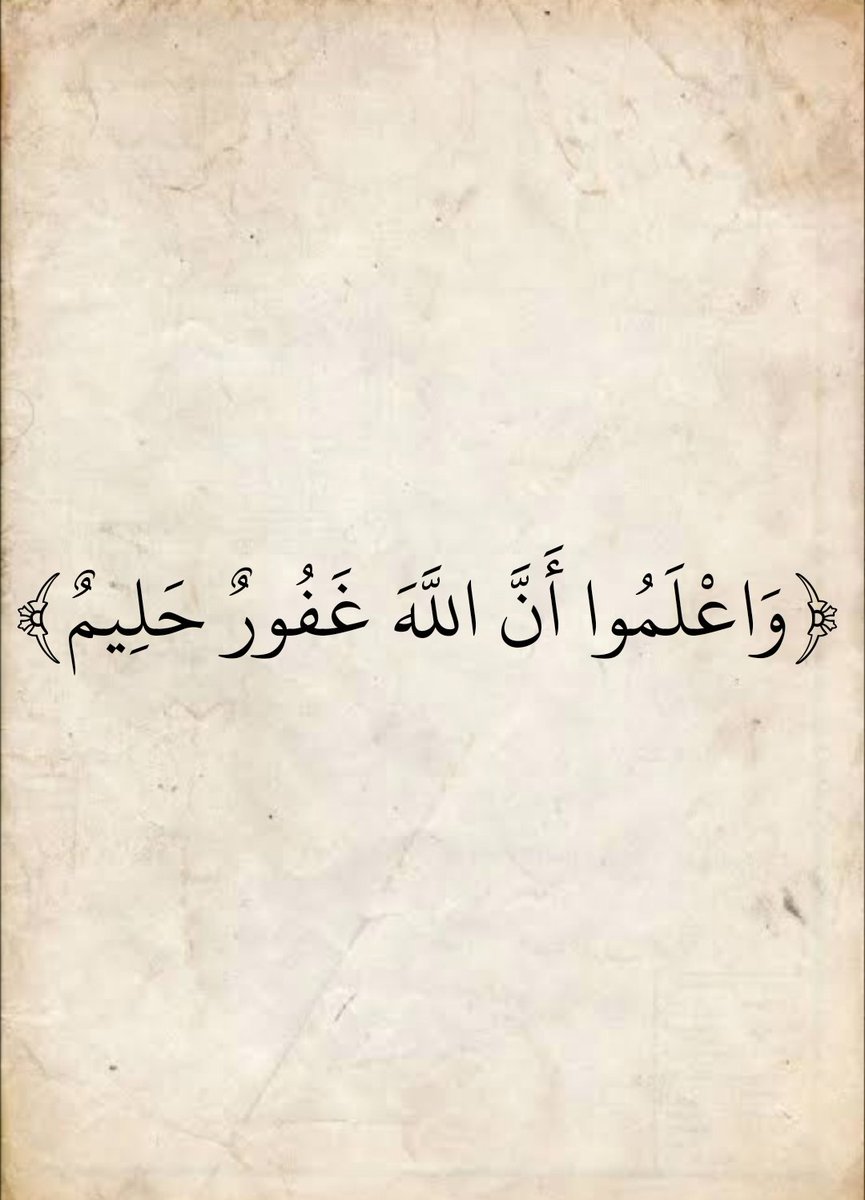 ﴿وَاعْلَمُوا أَنَّ اللَّهَ غَفُورٌ حَلِيمٌ﴾